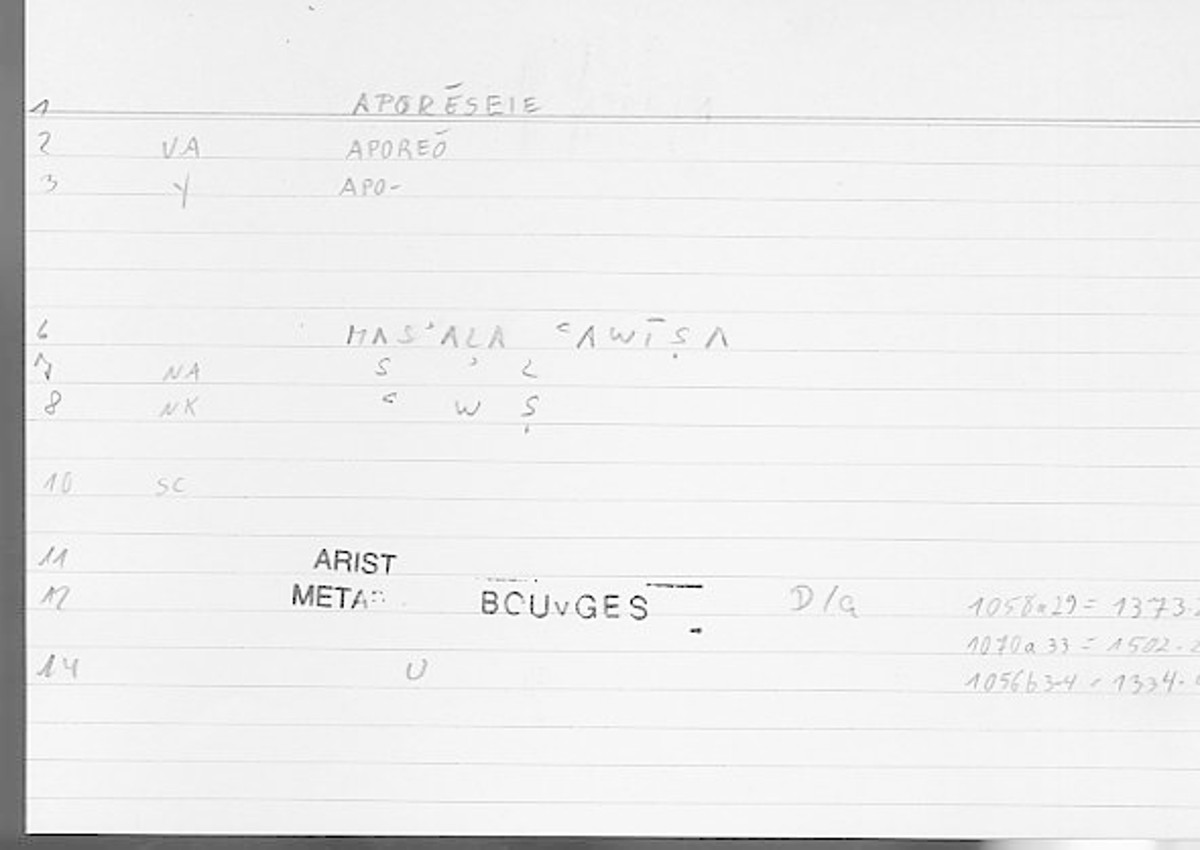 1 APORĒSEIE
2 VA APOREŌ
3 Y APO-
6 MAS’ALA ʿAWĪṢA
7 NA S ʾ L
8 NK ʿ W Ṣ
10 SC
11 ARIST
12 META BOUYGES D/G 1058a29 = 1373.
1070a33 = 1502.
14 U 1056b3-4 = 1334.